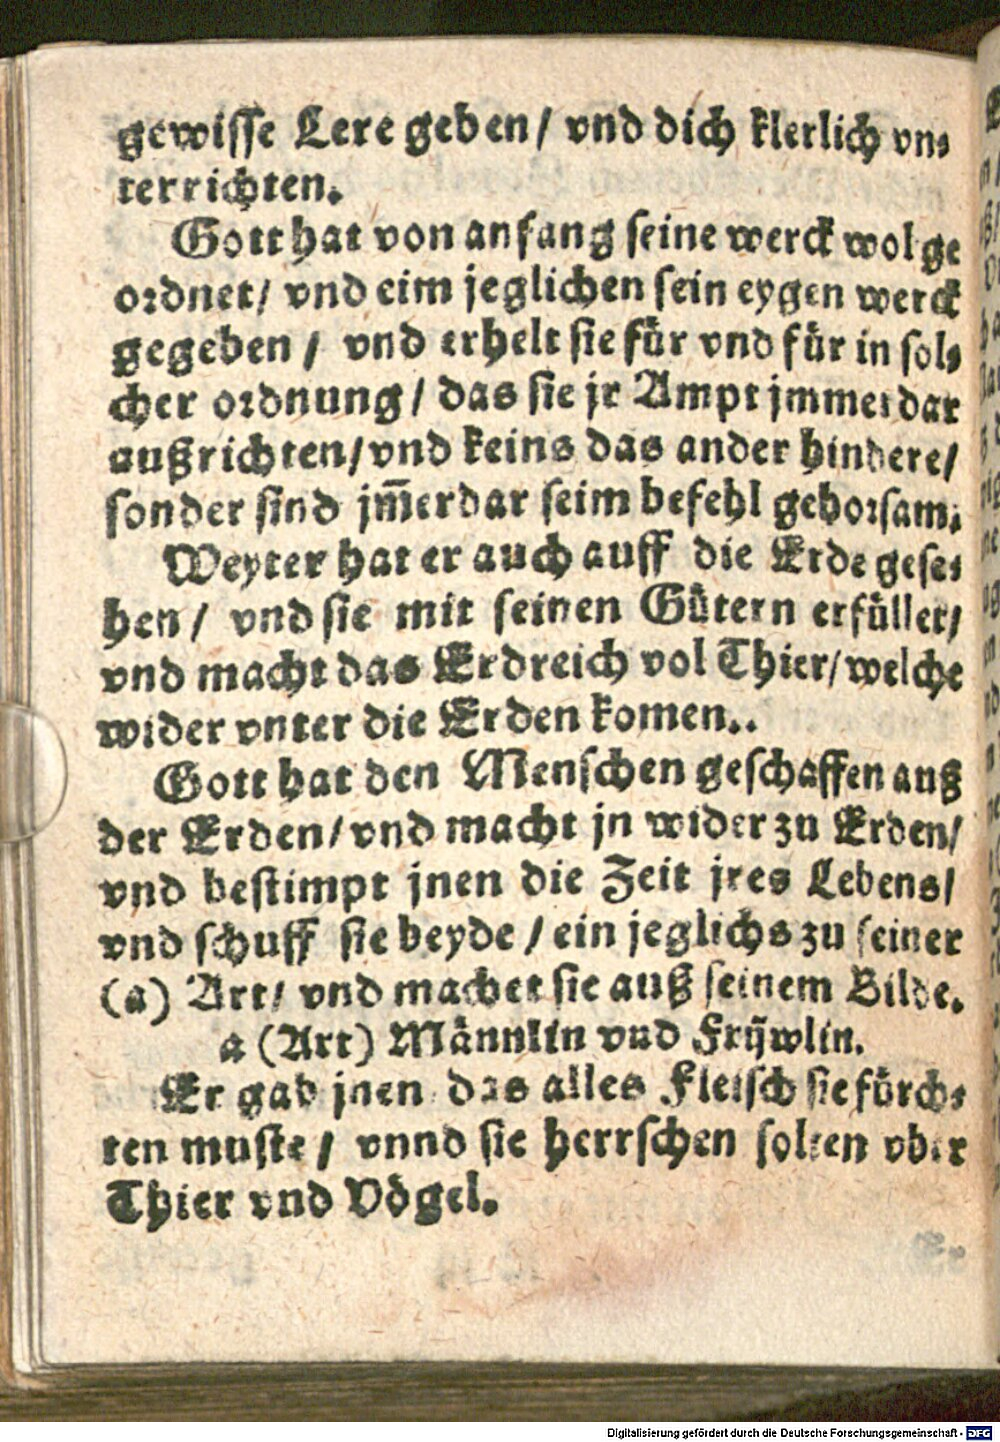 gewisse Lere geben / vnd dich klerlich vn⸗
terrichten.
Gott hat von anfang seine werck wol ge
ordnet / vnd eim jeglichen sein eygen werck
gegeben / vnd erhelt sie für vnd für in sol⸗
cher ordnung / das sie jr Ampt jmmerdar
außrichten / vnd keins das ander hindere /
sonder sind jm̃erdar seim befehl gehorsam.
Weyter hat er auch auff die Erde gese⸗
hen / vnd sie mit seinen Gütern erfüllet /
vnd macht das Erdreich vol Thier / welche
wider vnter die Erden komen..
Gott hat den Menschen geschaffen auß
der Erden / vnd macht jn wider zu Erden /
vnd bestimpt jnen die Zeit jres Lebens /
vnd schuff sie beyde / ein jeglichs zu seiner
(a) Art / vnd machet sie auß seinem Bilde.
a (Art) Männlin vnd Frÿwlin.
Er gab jnen das alles Fleisch sie fürch⸗
ten muste / vnnd sie herrschen solten vber
Thier vnd Vögel.
Digitalisierung gefördert durch die Deutsche Forschungsgemeinschaft - DFG